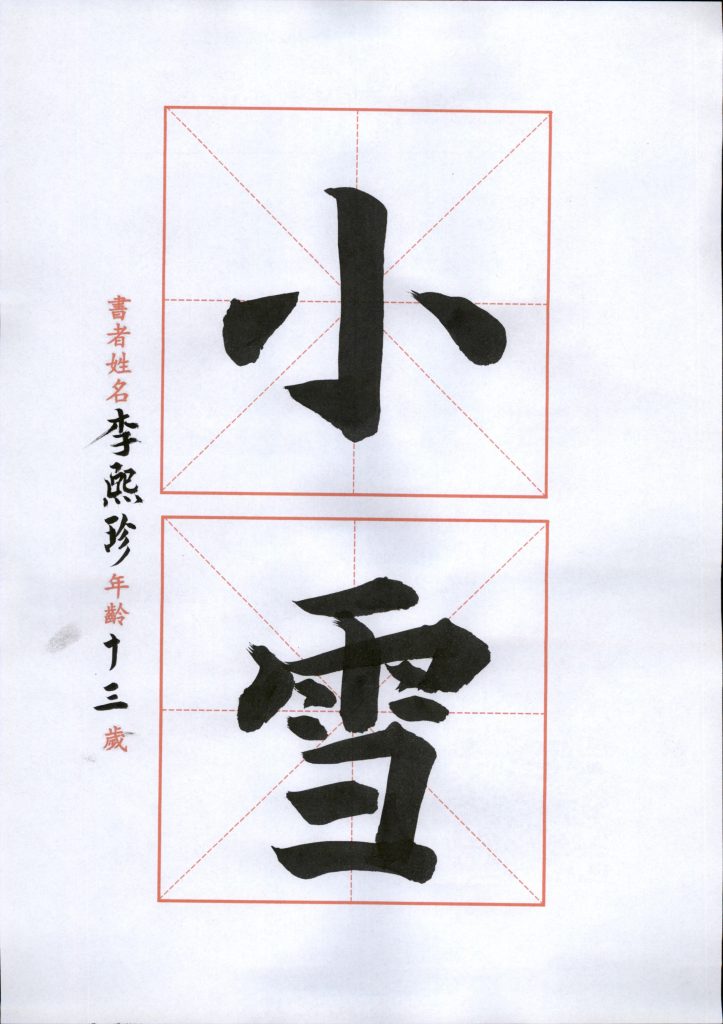 小雪
書者姓名李熙珍年齡十三歲